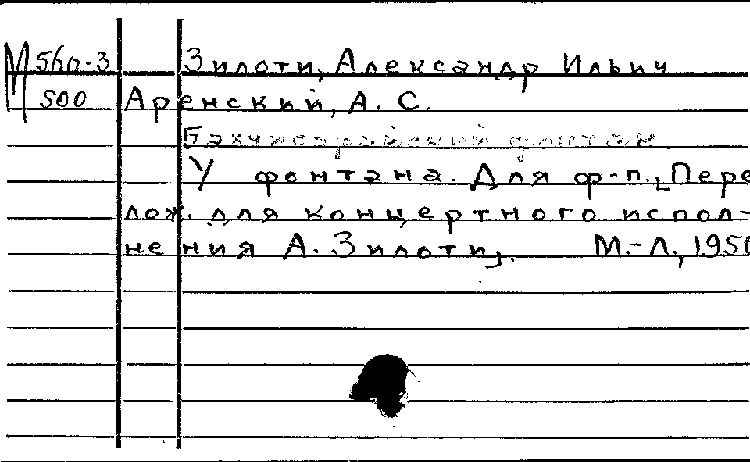 М 560-3 Зилоти, Александр Ильич
500 Аренский, А. С.
Бахчисарайский фонтан
У фонтана. Для ф-п. [Пере
лож. для концертного испол-
нения А. Зилоти]. М.-Л., 1950